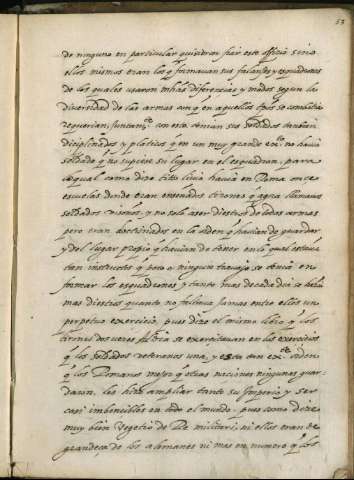 53
de ninguno en particular quisieron fiar este offizio sino
ellos mismos eran los q formauan sus falanjes y esquadrones
de los quales usaron mchas diferencias y modos segun la
diuersidad de las armas con q en aquellos tpos se combatia
requerian, juntamte con esto tenian sus soldados tan bien
diciplinados y platicos q en un muy grande exto no hauia
soldado q no supiese su lugar en el esquadron, para
lo qual como dize tito liuio hauia en Roma once
escuelas donde eran enseñados tirones q agora llamamos
soldados visoños, y no solo a ser diestros de todas armas
pero eran doctrinados en la orden q hauian de guardar
y del lugar propio q hauian de tener en lo qual estauan
tan instructos q poco o ningun trabajo se tenia en
formar los esquadrones y tanto mas de cada dia se hazian
mas diestros quanto no faltaua jamas entre ellos un
perpetuo exercicio, pues dize el mismo libro q los
tirones dos veces al dia se exercitauan en los exercicios
q los soldados veteranos una, y esta con exte orden
q los Romanos mejor q otras naciones ningunas guar-
dauan, les hizo ampliar tanto su Imperio y ser
casi inbencibles en todo el mundo. pues como dize
muy bien vegetio De Re militari, ni ellos eran de
grandeza de los alemanes ni mas en numero q los